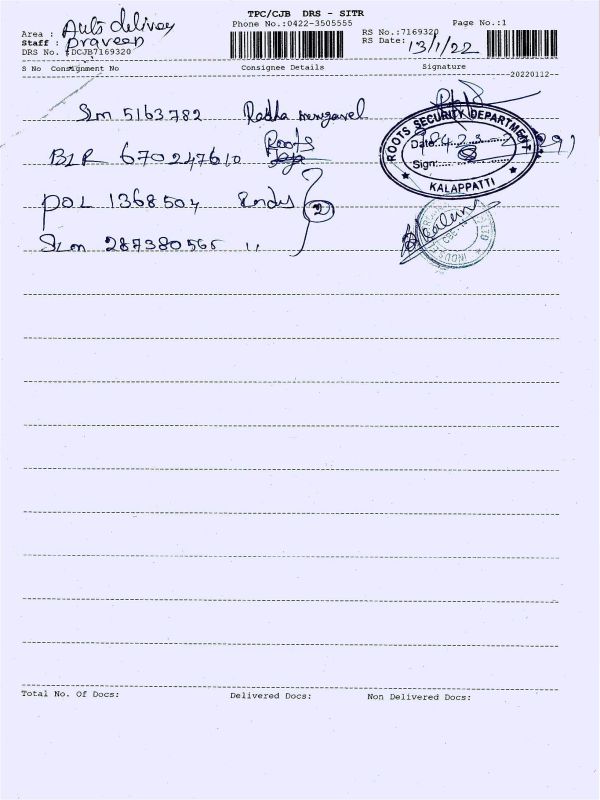 TPC/CJB DRS - SITR
Phone No.:0422-3505555
Page No.:1
Area : Auto delivey
Staff : Praveen
DRS No. :DCJB7169320
RS No.:7169320
RS Date: 13/1/22
S No Consignment No Consignee Details Signature
20220112--
Slm 5163782 Radha
BLR 670247610 Roots
POL 1368504
Slm 287380565 "
2
ROOTS SECURITY DEPARTMENT
Date:
Sign:
KALAPPATTI
Total No. Of Docs: Delivered Docs: Non Delivered Docs: